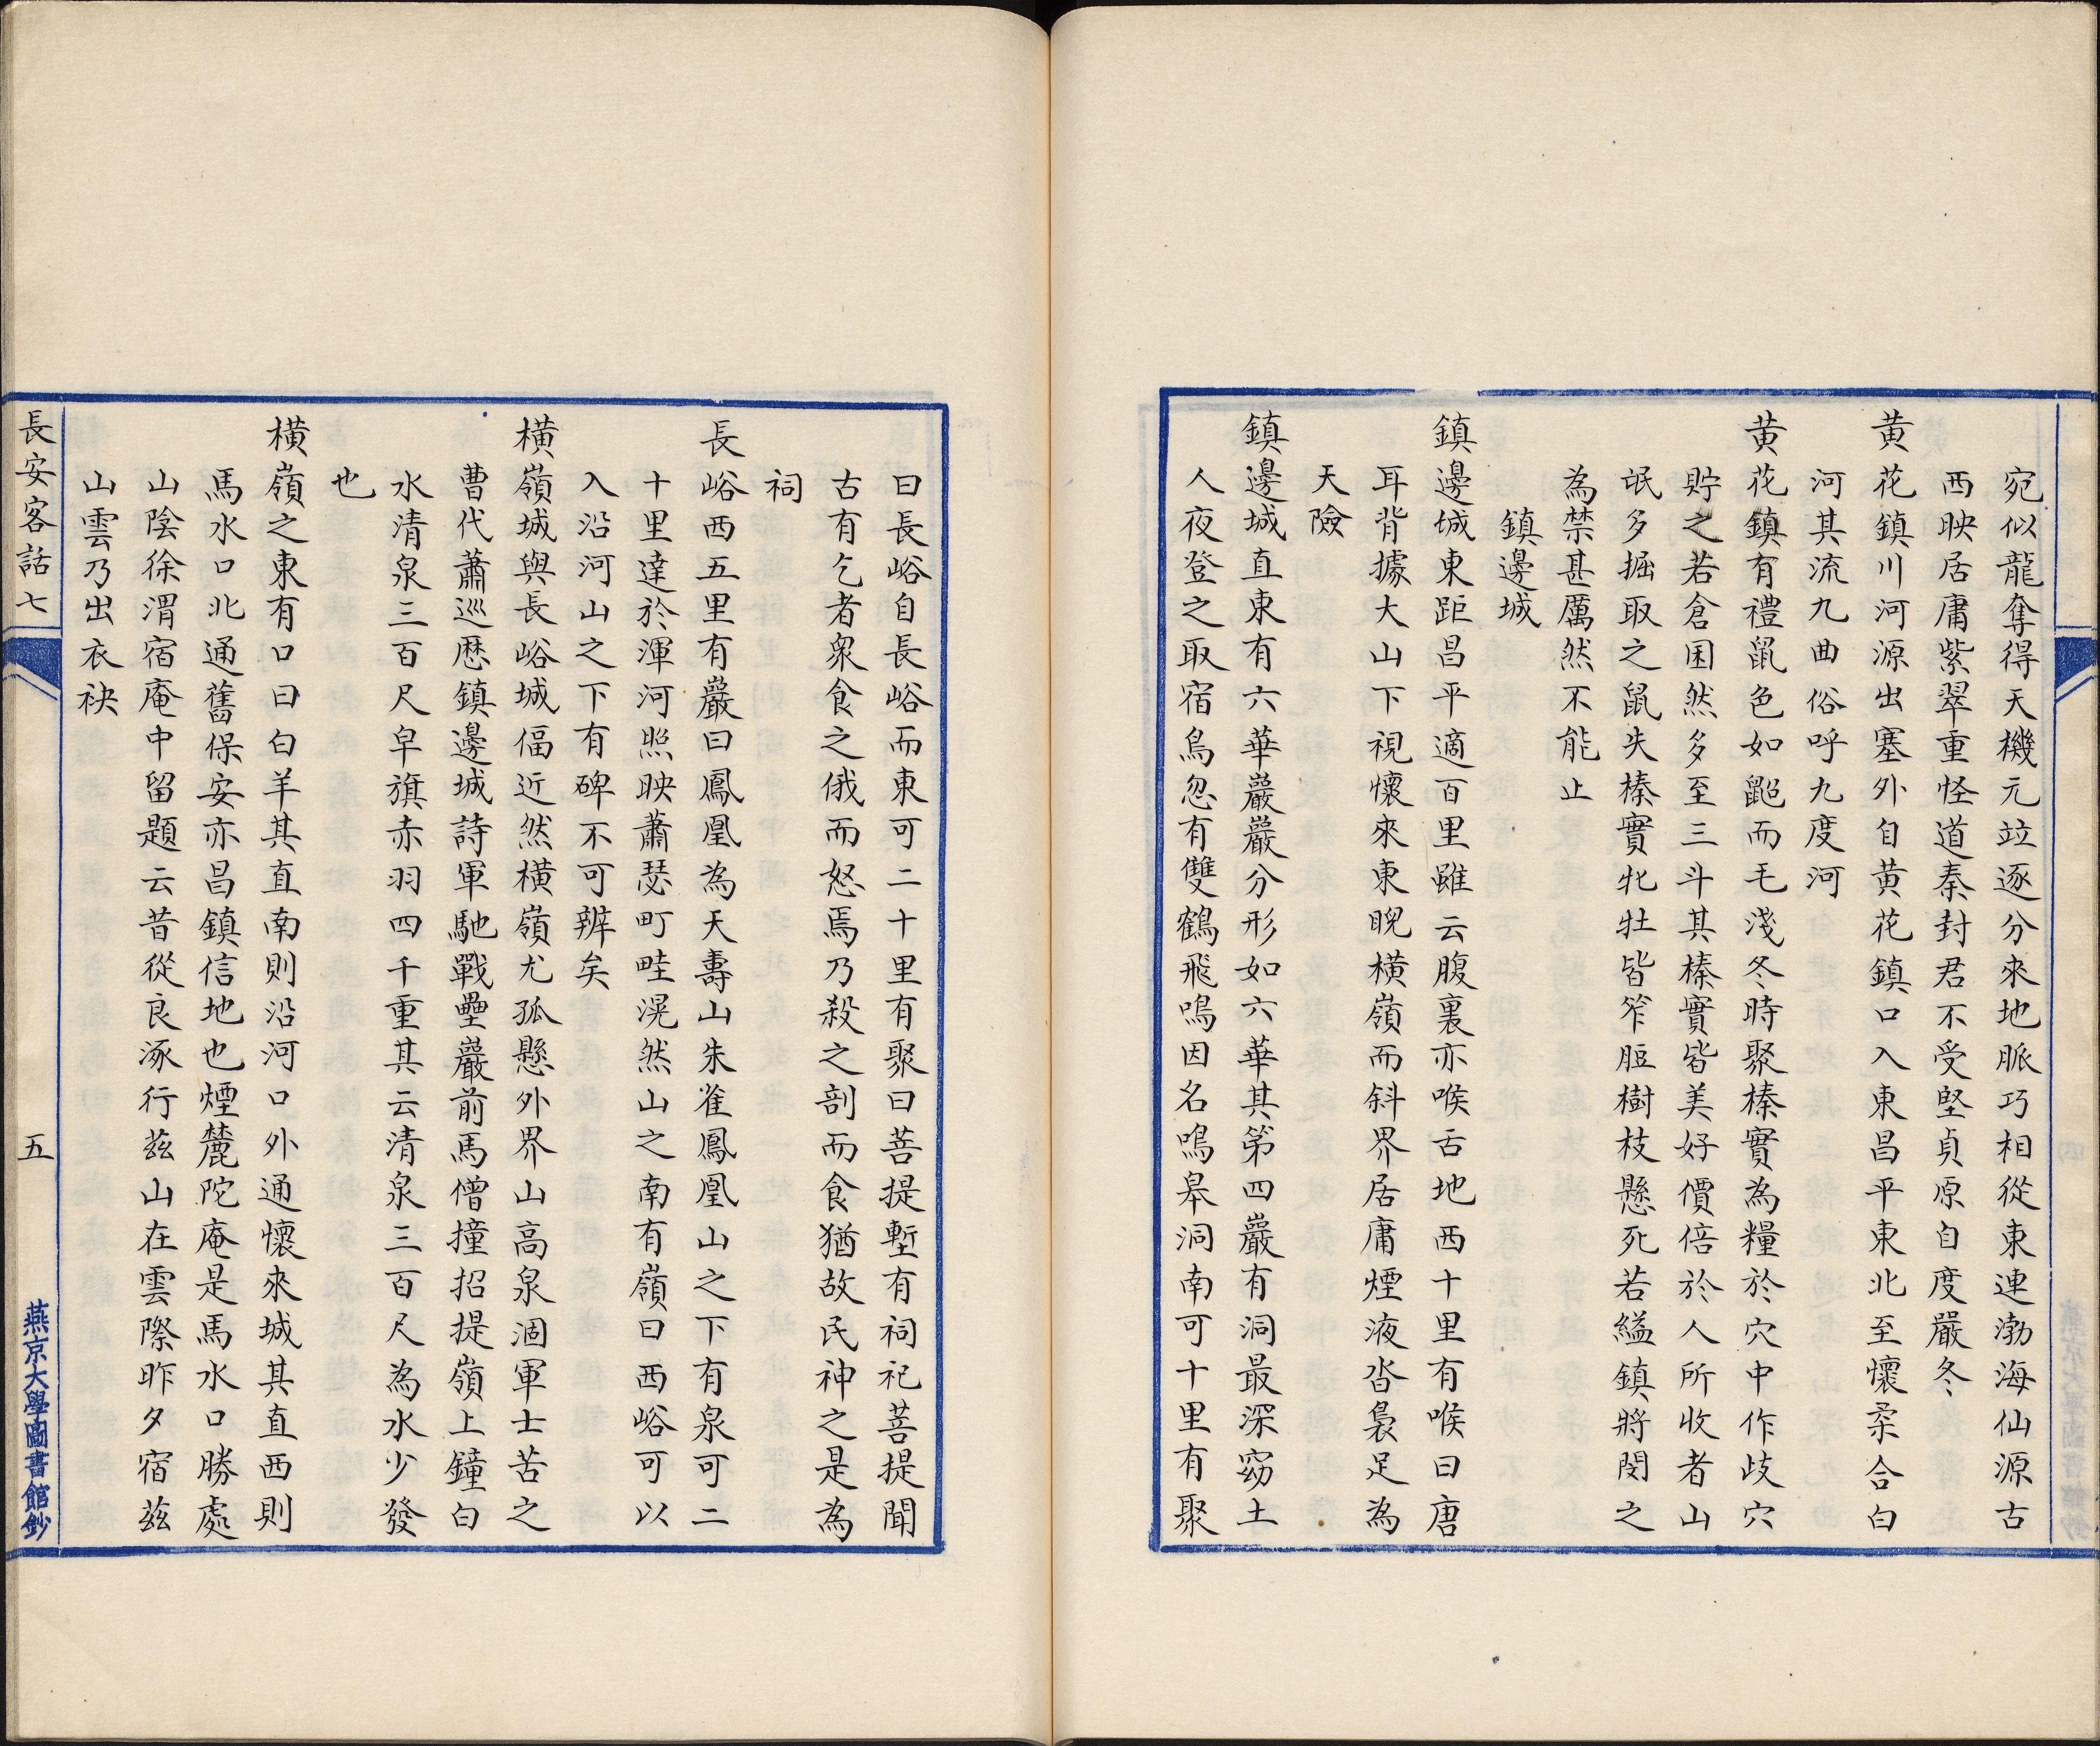 宛似龍奪得天機元竝逐分來地脈巧相從東連渤海仙源古
西映居庸紫翠重怪道秦封君不受堅貞原自度嚴冬
黃花鎮川河源出塞外自黃花鎮口入東昌平東北至懷柔合白
河其流九曲俗呼九度河
黃花鎮有禮鼠色如鼦而毛淺冬時聚榛實為糧於穴中作歧穴
貯之若倉囷然多至三斗其榛實皆美好價倍於人所收者山
氓多掘取之鼠失榛實牝牡皆笮脰樹枝懸死若縊鎮將閔之
為禁甚厲然不能止
鎮邊城
鎮邊城東距昌平適百里雖云腹裏亦喉舌地西十里有喉曰唐
耳背據大山下視懷來東睨橫嶺而斜界居庸煙液沓裊足為
天險
鎮邊城直東有六華巖巖分形如六華其第四巖有洞最深窈土
人夜登之取宿鳥忽有雙鶴飛鳴因名鳴皋洞南可十里有聚
曰長峪自長峪而東可二十里有聚曰菩提塹有祠祀菩提聞
古有乞者衆食之俄而怒焉乃殺之剖而食猶故民神之是為
祠
長峪西五里有巖曰鳳凰為天壽山朱雀鳳凰山之下有泉可二
十里達於渾河照映蕭瑟町畦滉然山之南有嶺曰西峪可以
入沿河山之下有碑不可辨矣
橫嶺城與長峪城偪近然橫嶺尤孤懸外界山高泉涸軍士苦之
曹代蕭巡歷鎮邊城詩軍馳戰壘巖前馬僧撞招提嶺上鐘白
水清泉三百尺皁旗赤羽四千重其云清泉三百尺為水少發
也
橫嶺之東有口曰白羊其直南則沿河口外通懷來城其直西則
馬水口北通舊保安亦昌鎮信地也煙麓陀庵是馬水口勝處
山陰徐渭宿庵中留題云昔從良涿行茲山在雲際昨夕宿茲
山雲乃出衣袂
長安客話七
五
燕京大學圖書館鈔